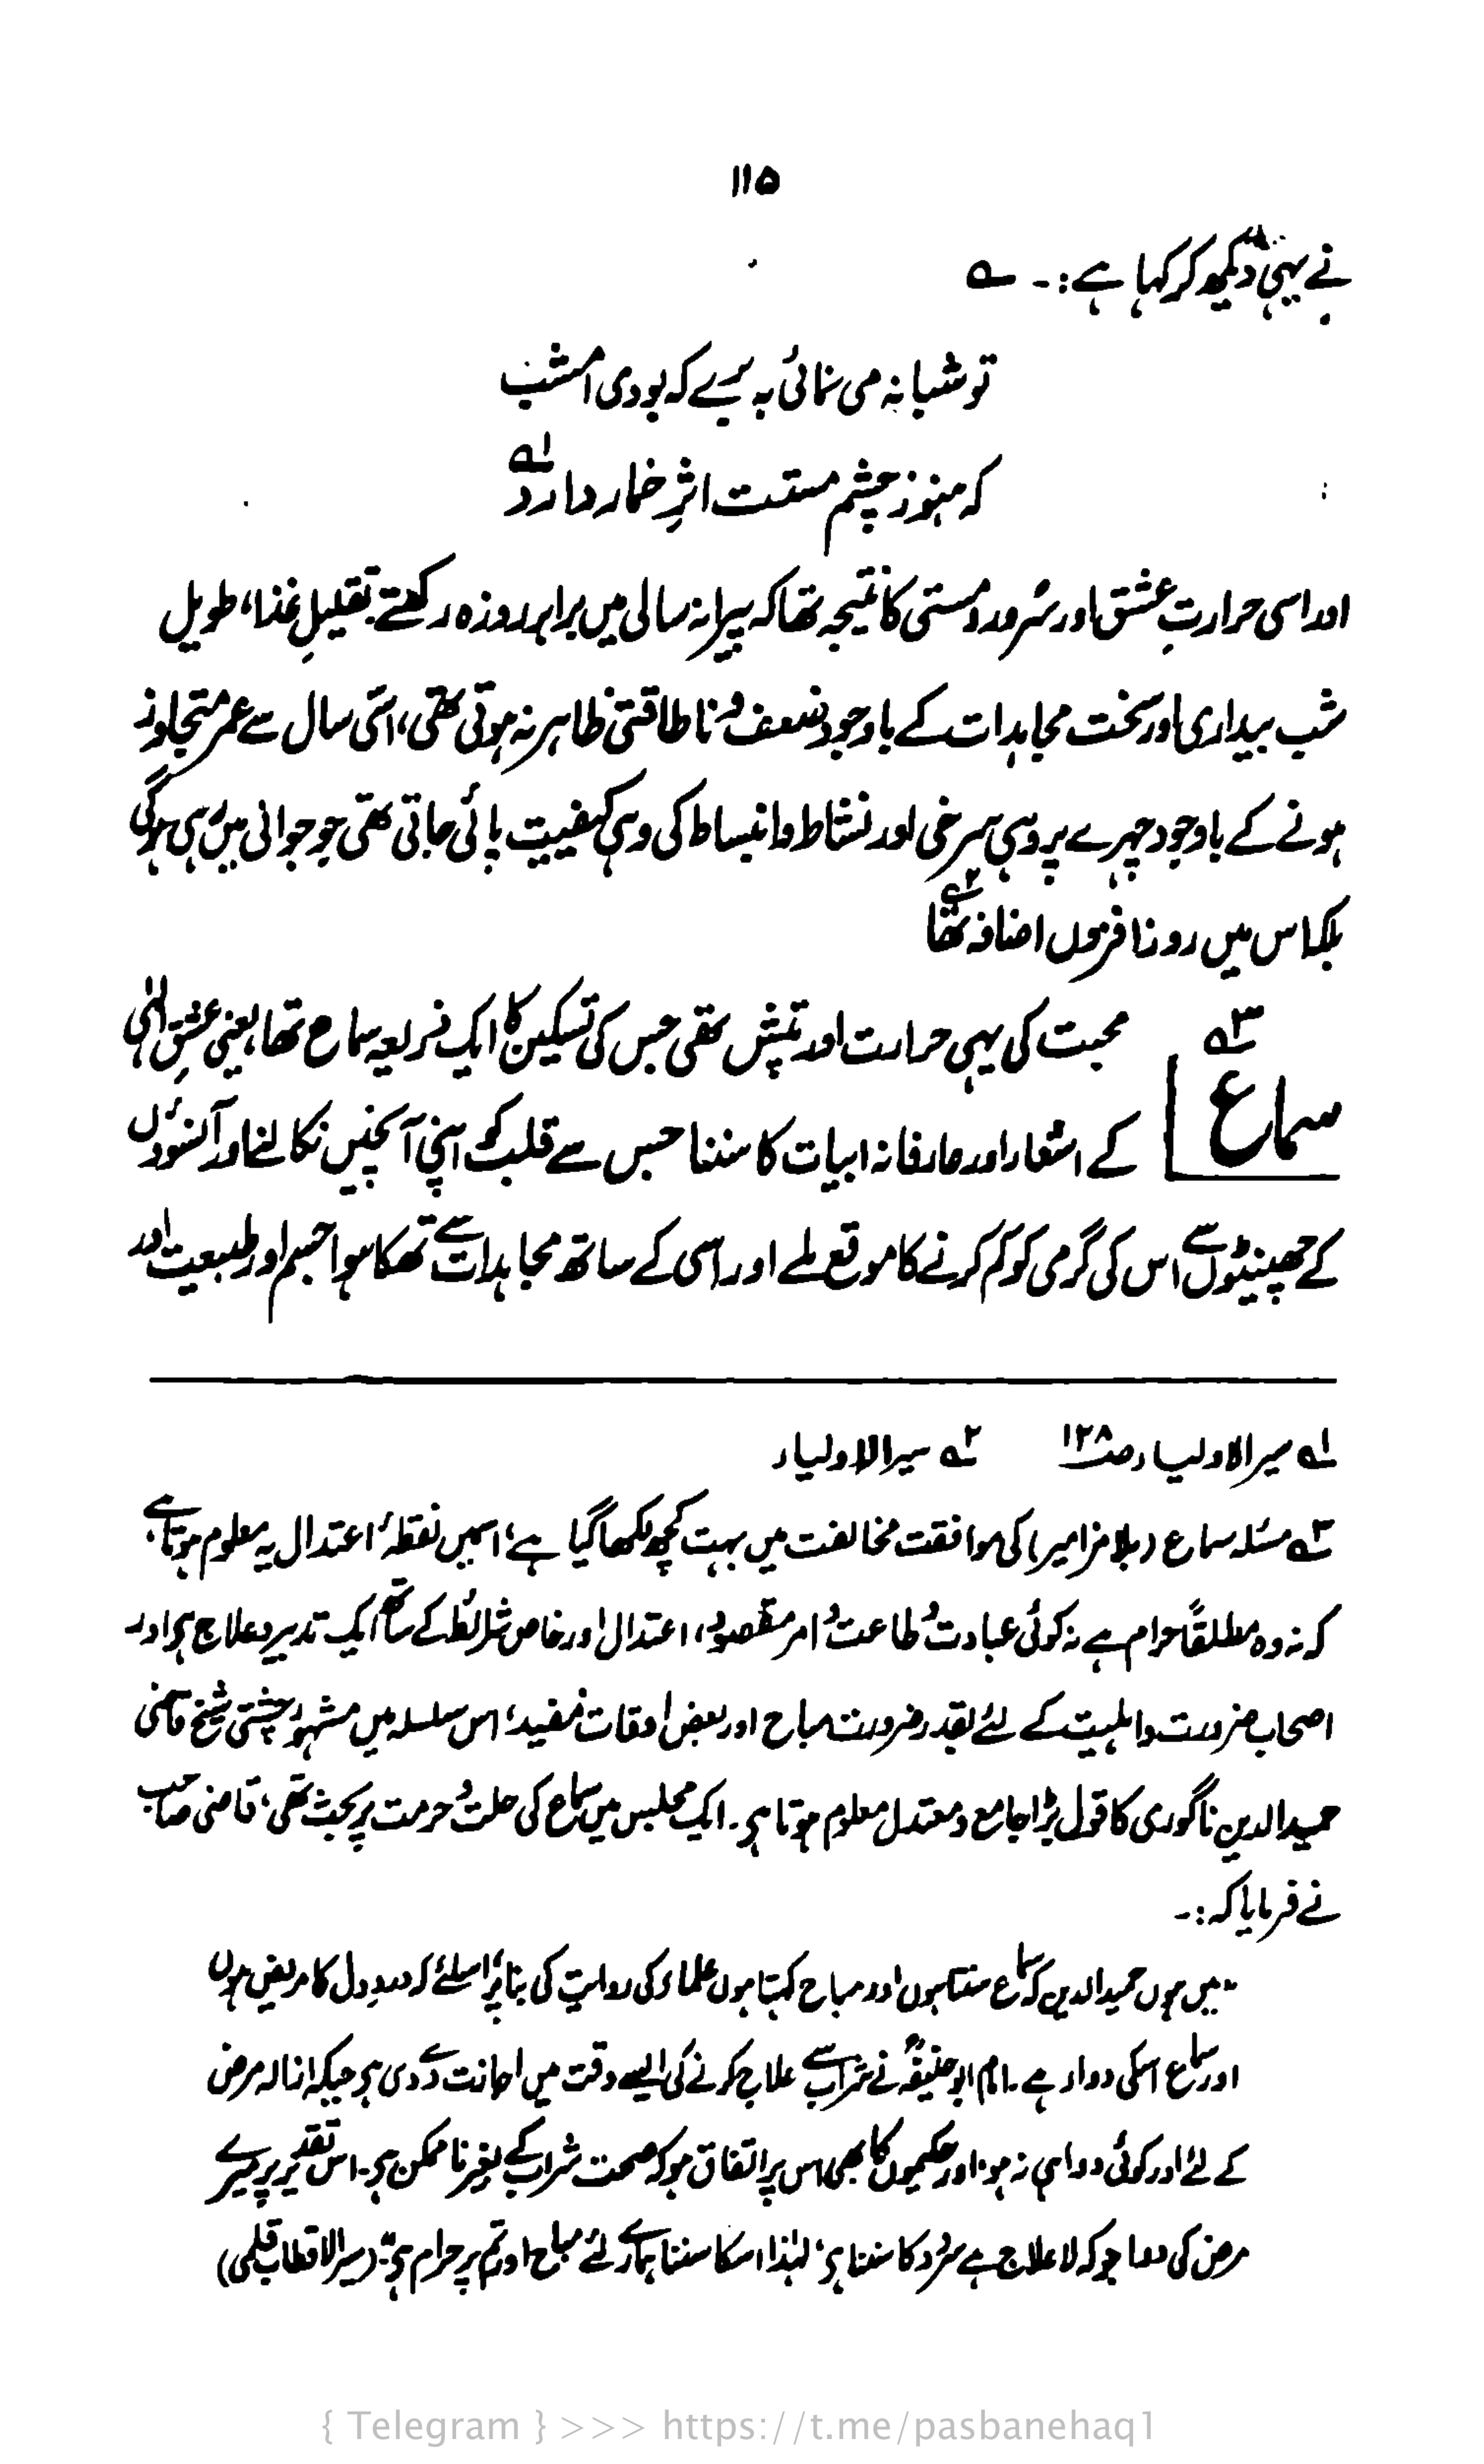 ۱۱۵
نے یہی دیکھ کر کہا ہے :۔ ؎
تو شبانہ می نمائی بہ برے کہ بودی امشب
کہ ہنوز چشم مستت اثرِ خمار دارد لہ
اور اسی حرارتِ عشق اور سُرور و مستی کا نتیجہ تھا کہ پیرانہ سالی میں برابر روزہ رکھتے، تقلیلِ غذا، طویل
شب بیداری اور سخت مجاہدات کے باوجود ضعف و ناطاقتی ظاہر نہ ہوتی تھی، اسّی سال سے عمر متجاوز
ہونے کے باوجود چہرے پر وہی سرخی اور نشاط و انبساط کی وہی کیفیت پائی جاتی تھی جو جوانی میں رہی ہوگی
بلکہ اس میں روز افزوں اضافہ تھا ۲ے
سماع ۳ہ محبت کی یہی حرارت اور تپش تھی جس کی تسکین کا ایک ذریعہ سماع تھا، یعنی عشقِ الٰہی
کے اشعار اور عارفانہ ابیات کا سننا جس سے قلب کو اپنی آنچیں نکالنے اور آنسوؤں
کے چھینٹوں سے اس کی گرمی کو کم کرنے کا موقع ملے اور اسی کے ساتھ مجاہدات سے تھکا ہوا جسم اور طبیعت اور
لہ سیر الاولیاء ص۱۲۸ ۲ہ سیر الاولیاء
۳ہ مسئلہ سماع (بلا مزامیر) کی موافقت مخالفت میں بہت کچھ لکھا گیا ہے، اسمیں نقطۂ اعتدال یہ معلوم ہوتا ہے
کہ نہ وہ مطلقاً حرام ہے نہ کوئی عبادت و طاعت و امر مقصود، اعتدال اور خاص شرائط کے ساتھ ایک تدبیر و علاج ہے اور
اصحاب ضرورت و اہلیت کے لئے بقدر ضرورت مباح اور بعض اوقات مفید، اس سلسلہ میں مشہور چشتی شیخ قاضی
حمید الدین ناگوری کا قول بڑا جامع و معتدل معلوم ہوتا ہے۔ ایک مجلس میں سماع کی حلت و حرمت پر بحث تھی، قاضی صاحب
نے فرمایا کہ :۔
"میں ہوں حمید الدین کہ سماع سنتا ہوں اور مباح کہتا ہوں علماء کی روایت کی بنا پر، اسلئے کہ دردِ دل کا مریض ہوں
اور سماع اسکی دواء ہے۔ امام ابو حنیفہؒ نے شراب سے علاج کرنے کی ایسے وقت میں اجازت دے دی ہے جبکہ ازالہ مرض
کے لئے اور کوئی دوا ہی نہ ہو، اور حکیموں کا بھی اس پر اتفاق ہو کہ صحت شراب کے بغیر ناممکن ہے۔ اس تقدیر پر میرے
مرض کی دوا جو کہ لا علاج ہے سرود کا سننا ہے، لہٰذا اسکا سننا ہمارے لئے مباح اور تم پر حرام ہے" (سیر الاقطاب قلمی)
{ Telegram } >>> https://t.me/pasbanehaq1